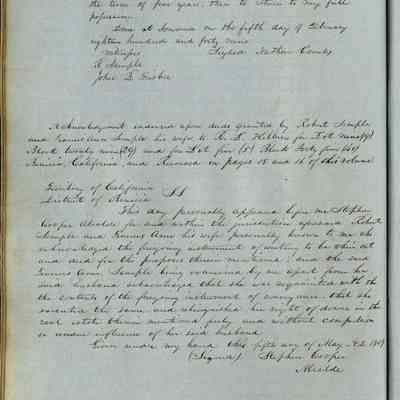 the term of four years, then to return to my full
possession.
Done at Sonoma on the fifth day of February
eighteen hundred and forty nine
Witnesses Signed Nathan Coombs
R Semple
John B. Frisbie
Acknowledgment endorsed upon deeds granted by Robert Semple
and Frances Ann Semple his wife to for Lot nine (9)
Block twenty nine (29) and for Lot five (5) Block forty five (45)
Benicia, California, and Recorded on pages 15 and 16 of this volume
Territory of California
District of Benicia SS
This day personally appeared before me Stephen
Cooper Alcalde for and within the jurisdiction aforesaid Robert
Semple and Frances Ann his wife personally known to me who
acknowledged the foregoing instrument of writing to be their act
and deed for the purposes therein mentioned; and the said
Frances Ann Semple being examined by me apart from her
said husband acknowledged that she was acquainted with the
contents of the foregoing instrument of conveyance that she
executed the same and relinquished her right of dower in the
real estate therein mentioned freely and without compulsion
or undue influence of her said husband
Given under my hand this fifth day of May A.D. 1849
(Signed) Stephen Cooper
Alcalde